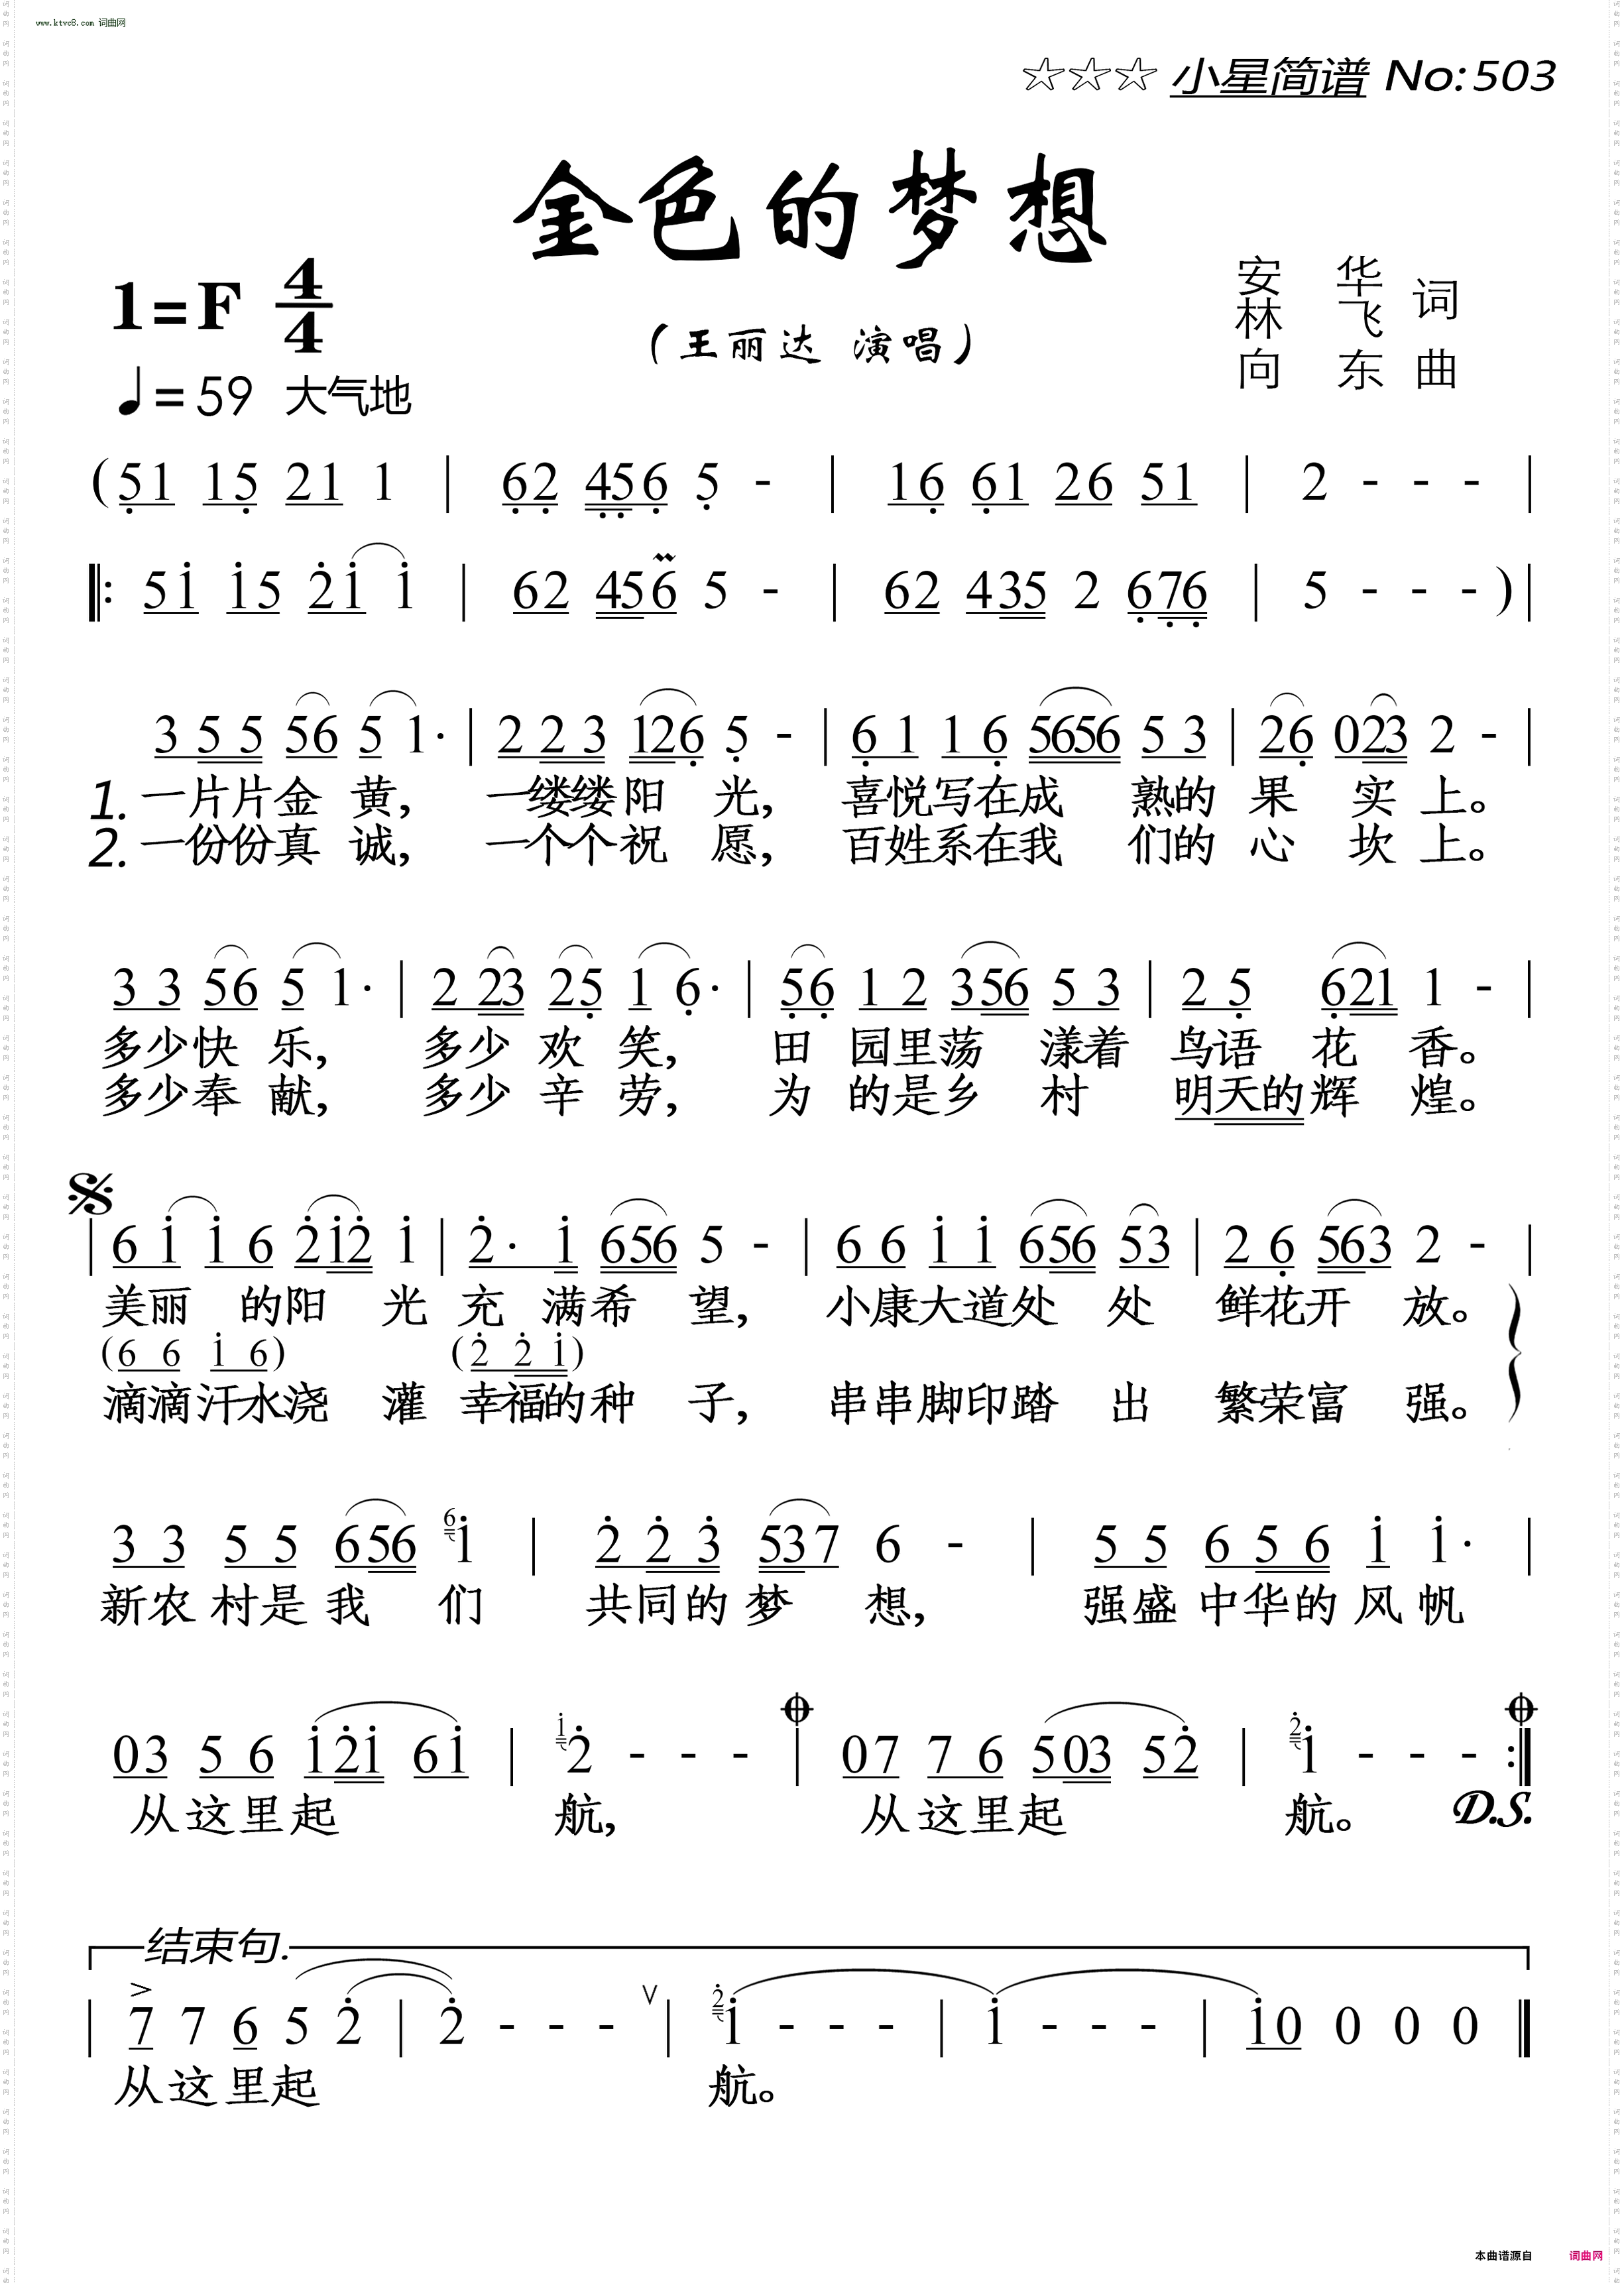 www.ktvc8.com 词曲网
☆☆☆ 小星简谱 No:503
金色的梦想
1=F 4/4
安 华 词
林 飞
(王丽达 演唱)
向 东 曲
♩=59 大气地
(51 15 21 1 | 62 456 5 - | 16 61 26 51 | 2 - - - |
‖: 51 15 21 1 | 62 456 5 - | 62 435 2 676 | 5 - - - )|
3 5 5 56 5 1· | 2 2 3 126 5 - | 6 1 1 6 5656 5 3 | 26 023 2 - |
1. 一片片金 黄, 一缕缕阳 光, 喜悦写在成 熟的 果 实 上。
2. 一份份真 诚, 一个个祝 愿, 百姓系在我 们的 心 坎 上。
3 3 56 5 1· | 2 23 25 1 6· | 56 1 2 356 5 3 | 2 5 621 1 - |
多少快 乐, 多少 欢 笑, 田 园里荡 漾着 鸟语 花 香。
多少奉 献, 多少 辛 劳, 为 的是乡 村 明天的辉 煌。
| 6 1 1 6 212 1 | 2· 1 656 5 - | 6 6 1 1 656 53 | 2 6 563 2 - |
美丽 的阳 光 充 满希 望, 小康大道处 处 鲜花开 放。
(6 6 1 6) (2 2 1)
滴滴汗水浇 灌 幸福的种 子, 串串脚印踏 出 繁荣富 强。
3 3 5 5 656 61 | 2 2 3 537 6 - | 5 5 6 5 6 1 1· |
新农 村是 我 们 共同的 梦 想, 强盛 中华的 风 帆
03 5 6 121 61 | 12 - - - | 07 7 6 503 52 | 21 - - - :‖
从这里起 航, 从这里起 航。 D.S.
结束句.
| 7 7 6 5 2 | 2 - - - | 21 - - - | 1 - - - | 10 0 0 0 ‖
从这里起 航。
本曲谱源自 词曲网